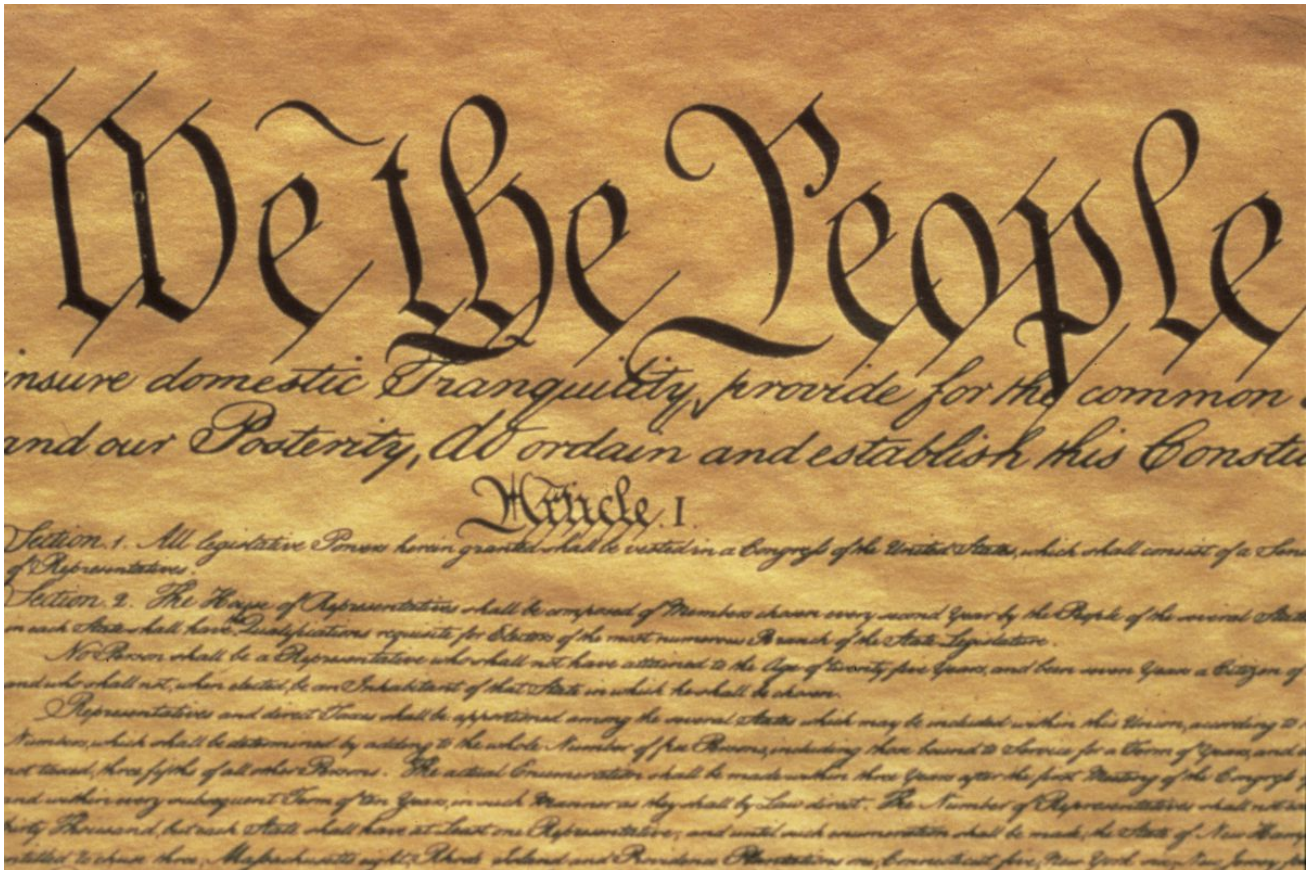 We the People
insure domestic Tranquility, provide for the common
and our Posterity, do ordain and establish this Constitu
Article. I.
Section. 1. All legislative Powers herein granted shall be vested in a Congress of the United States, which shall consist of a Sen
of Representatives.
Section. 2. The House of Representatives shall be composed of Members chosen every second Year by the People of the several States
in each State shall have the Qualifications requisite for Electors of the most numerous Branch of the State Legislature.
No Person shall be a Representative who shall not have attained to the Age of twenty five Years, and been seven Years a Citizen of
and who shall not, when elected, be an Inhabitant of that State in which he shall be chosen.
Representatives and direct Taxes shall be apportioned among the several States which may be included within this Union, according to
Numbers, which shall be determined by adding to the whole Number of free Persons, including those bound to Service for a Term of Years, and
not taxed, three fifths of all other Persons. The actual Enumeration shall be made within three Years after the first Meeting of the Congress
and within every subsequent Term of ten Years, in such Manner as they shall by Law direct. The Number of Representatives shall not
thirty Thousand, but each State shall have at Least one Representative; and until such enumeration shall be made, the State of New Hamp
entitled to chuse three, Massachusetts eight, Rhode Island and Providence Plantations one, Connecticut five, New York six, New Jersey